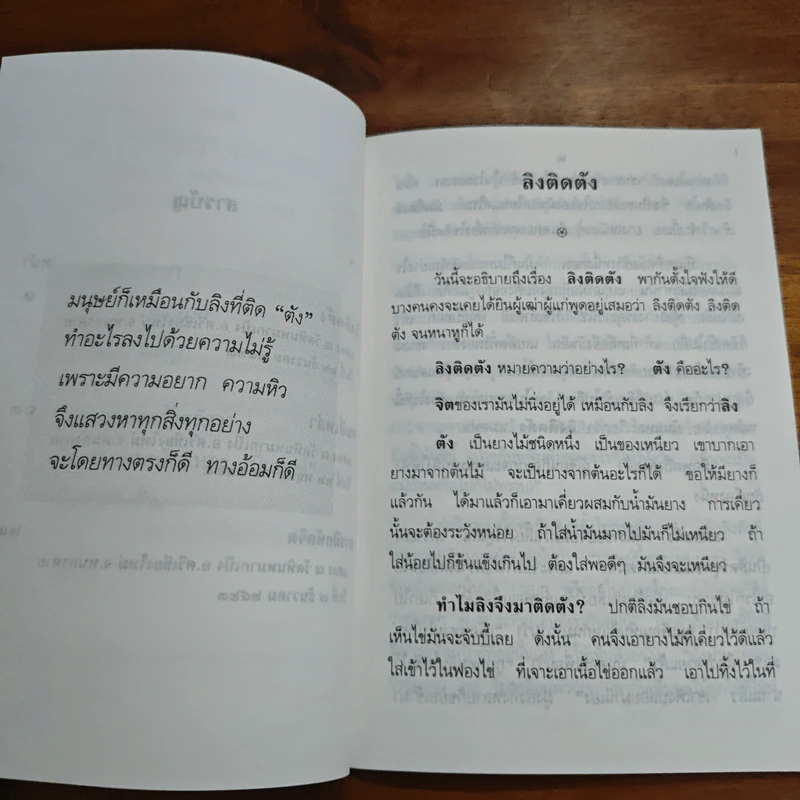 มนุษย์ก็เหมือนกับลิงที่ติด “ตัง”
ทำอะไรลงไปด้วยความไม่รู้
เพราะมีความอยาก ความหิว
จึงแสวงหาทุกสิ่งทุกอย่าง
จะโดยทางตรงก็ดี ทางอ้อมก็ดี
ลิงติดตัง
วันนี้จะอธิบายถึงเรื่อง ลิงติดตัง พากันตั้งใจฟังให้ดี
บางคนคงจะเคยได้ยินผู้เฒ่าผู้แก่พูดอยู่เสมอว่า ลิงติดตัง ลิงติด
ตัง จนหนาหูก็ได้
ลิงติดตัง หมายความว่าอย่างไร? ตัง คืออะไร?
จิตของเรามันไม่นิ่งอยู่ได้ เหมือนกับลิง จึงเรียกว่าลิง
ตัง เป็นยางไม้ชนิดหนึ่ง เป็นของเหนียว เขาบากเอา
ยางมาจากต้นไม้ จะเป็นยางจากต้นอะไรก็ได้ ขอให้มียางก็
แล้วกัน ได้มาแล้วก็เอามาเคี่ยวผสมกับน้ำมันยาง การเคี่ยว
นั้นจะต้องระวังหน่อย ถ้าใส่น้ำมันมากไปมันก็ไม่เหนียว ถ้า
ใส่น้อยไปก็ข้นแข็งเกินไป ต้องใส่พอดีๆ มันจึงจะเหนียว
ทำไมลิงจึงมาติดตัง? ปกติลิงมันชอบกินไข่ ถ้า
เห็นไข่มันจะจับบี้เลย ดังนั้น คนจึงเอายางไม้ที่เคี่ยวไว้ดีแล้ว
ใส่เข้าไว้ในฟองไข่ ที่เจาะเอาเนื้อไข่ออกแล้ว เอาไปทิ้งไว้ในที่